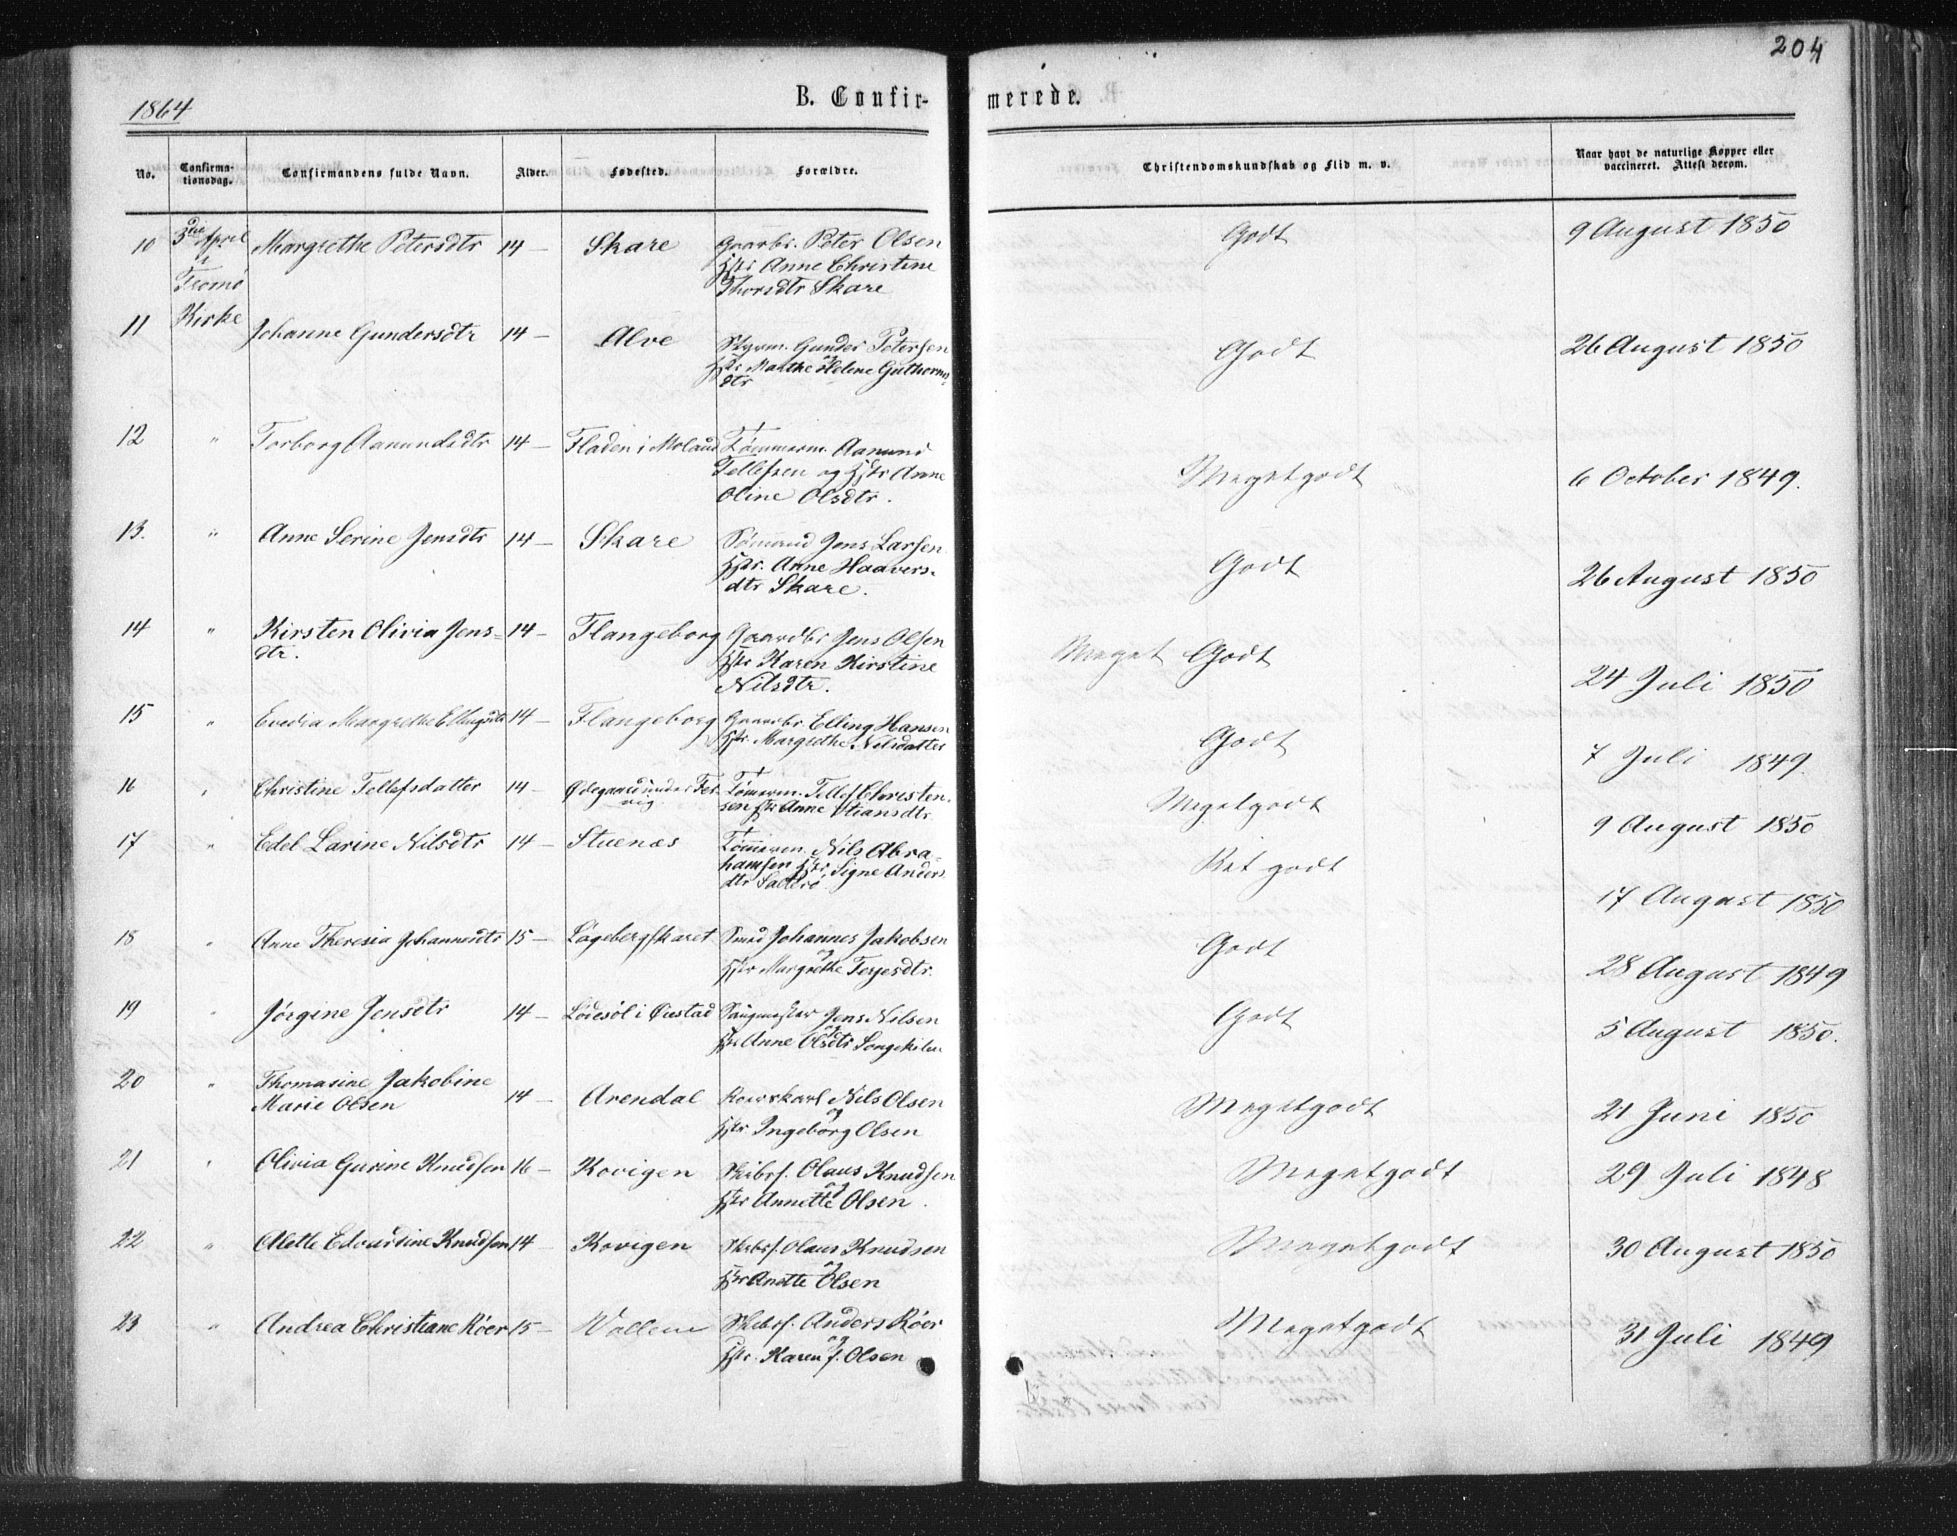 204
1864
B. Confirmerede.
No. Confirmationsdag. Confirmandens fulde Navn. Alder. Fødested. Forældre. Christendomskundskab og Flid m. v. Naar havt de naturlige Kopper eller vaccineret. Attest derom.
10 3die April i Tromø Kirke Margrethe Petersdtr 14 — Skare Gaarbr. Peter Olsen
Hstr Anne Christine
Thorsdtr Skare Godt 9 August 1850
11 Johanne Gundersdtr 14 — Alve Styrm. Gunder Petersen
og Hstr Marthe Helene Guthorms-
dtr Godt 26 August 1850
12 " Torborg Aanundsdtr 14 — Fladen i Moland † Tømmerm. Aanund
Tellefsen og Hstr Anne
Oline Olsdtr. Megetgodt 6 October 1849.
13. " Anne Serine Jensdtr 14 — Skare Sømand Jens Larsen
Hstr. Anne Haavers-
dtr Skare. Godt 26 August 1850
14 " Kirsten Olivia Jens-
dtr. 14 — Flangeborg Gaardbr Jens Olsen
Hstr Karen Kirstine
Nilsdtr. Meget Godt 24 Juli 1850
15 " Evedia Margrethe Ellingsdtr 14 — Flangeborg Gaardbr Elling Hansen
Hstr Margrethe Nilsdatter Godt 7 Juli 1849.
16 " Christine Tellefsdatter 14 — Ødegaard under Fer-
vig. † Tømerm. Tellef Christen-
sen Hstr Anne Stiansdtr. Megetgodt 9 August 1850
17 " Edel Larine Nilsdtr 14 — Stuenæs † Tømmerm. Nils Abra-
hamsen Hstr. Signe Anders
dtr Ret godt 17 August 1850
18 " Anne Theresia Johannesdtr 15 — Løgebergskaret Smed Johannes Jakobsen
og Hstr Margrethe Terjesdtr. Godt 28 August 1849
19 " Jørgine Jensdtr 14 — Lødesøl i Øiestad Saugmester Jens Nilsen
og Hstr Anne Olsdtr Songekilen Godt 5 August 1850.
20 " Thomasine Jakobine
Marie Olsen 14 — Arendal Roerskarl Nils Olsen
og Hstr Ingeborg Olsen Megetgodt 21 Juni 1850
21 " Olivia Gurine Knudsen 16 — Kovigen Skibsf. Olaus Knudsen
og Hstr Annette Olsen. Megetgodt 29 Juli 1848
22 " Alette Edvardine Knudsen 14 — Kovigen Skibsf. Olaus Knudsen
og Hstr Anette Olsen Megetgodt 30 August 1850
23 " Andrea Christiane Röer 15 — Vollene Skibsf. Anders Röer
og Hstr. Karen f. Olsen Megetgodt 31 Juli 1849